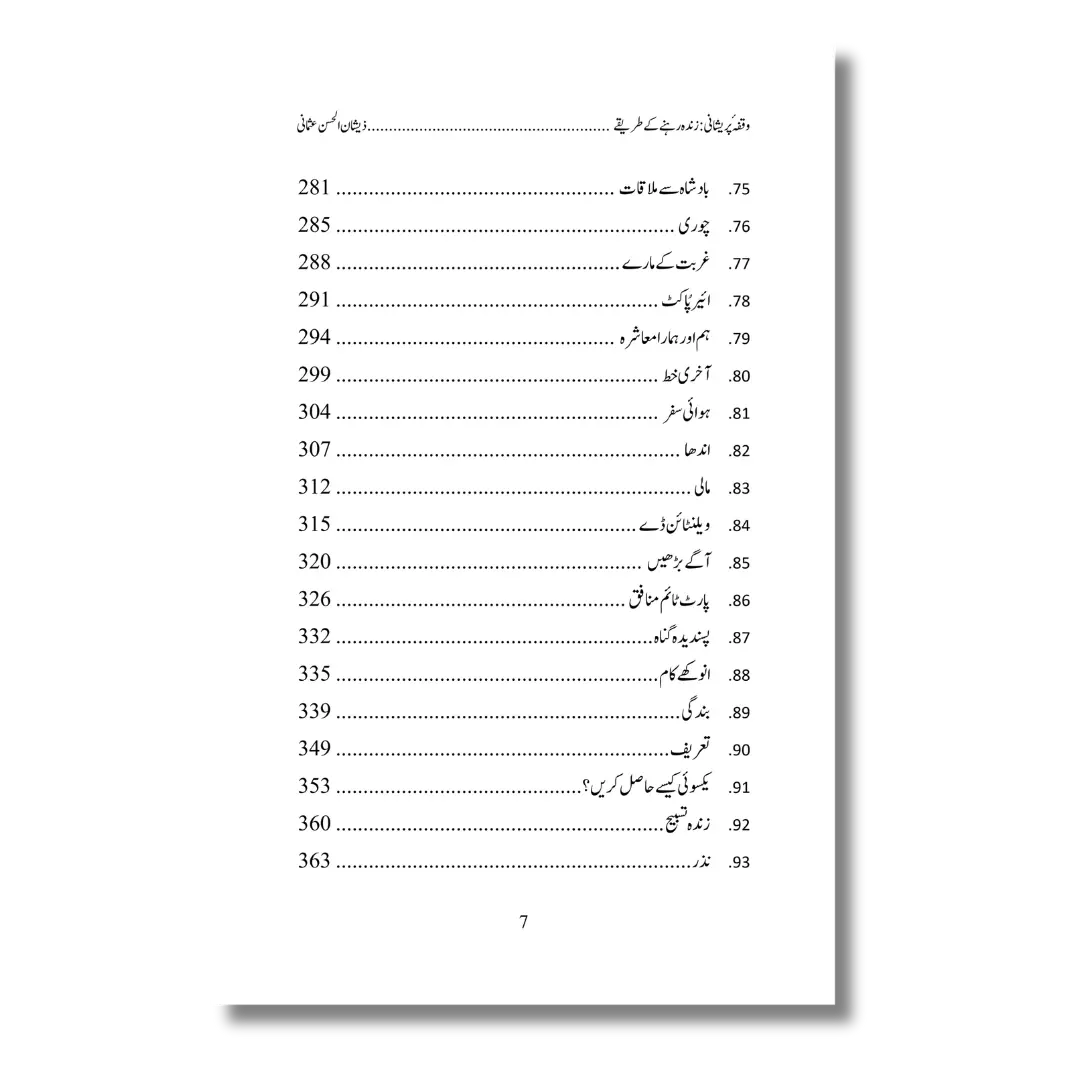 وقفۂ پریشانی: زندہ رہنے کے طریقے ........................................................ ذیشان الحسن عثمانی
75. بادشاہ سے ملاقات .................................................... 281
76. چوری ............................................................... 285
77. غربت کے مارے ..................................................... 288
78. ائیر پاکٹ ............................................................ 291
79. ہم اور ہمارا معاشرہ .................................................... 294
80. آخری خط ............................................................ 299
81. ہوائی سفر ............................................................ 304
82. اندھا ................................................................ 307
83. مالی .................................................................. 312
84. ویلنٹائن ڈے ........................................................ 315
85. آگے بڑھیں ......................................................... 320
86. پارٹ ٹائم منافق ...................................................... 326
87. پسندیدہ گناہ ........................................................... 332
88. انوکھے کام ............................................................ 335
89. بندگی ................................................................ 339
90. تعریف .............................................................. 349
91. یکسوئی کیسے حاصل کریں؟ .............................................. 353
92. زندہ تسبیح ............................................................. 360
93. نذر .................................................................. 363
7